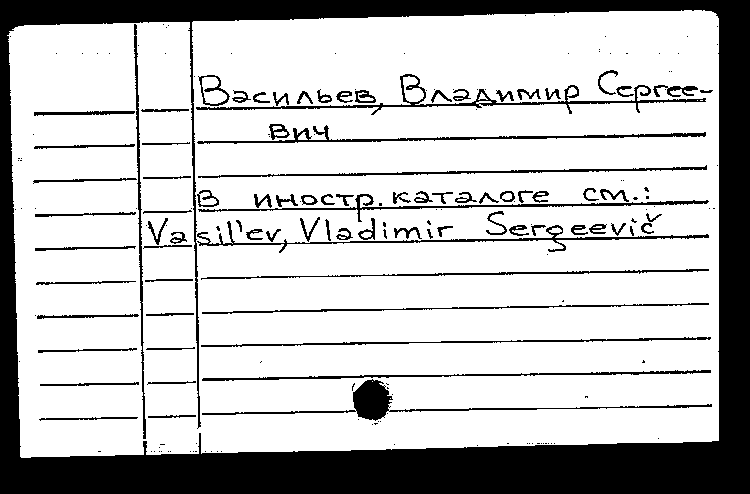 Васильев, Владимир Сергее-
вич
в иностр. каталоге см.:
Vasil'ev, Vladimir Sergeevič